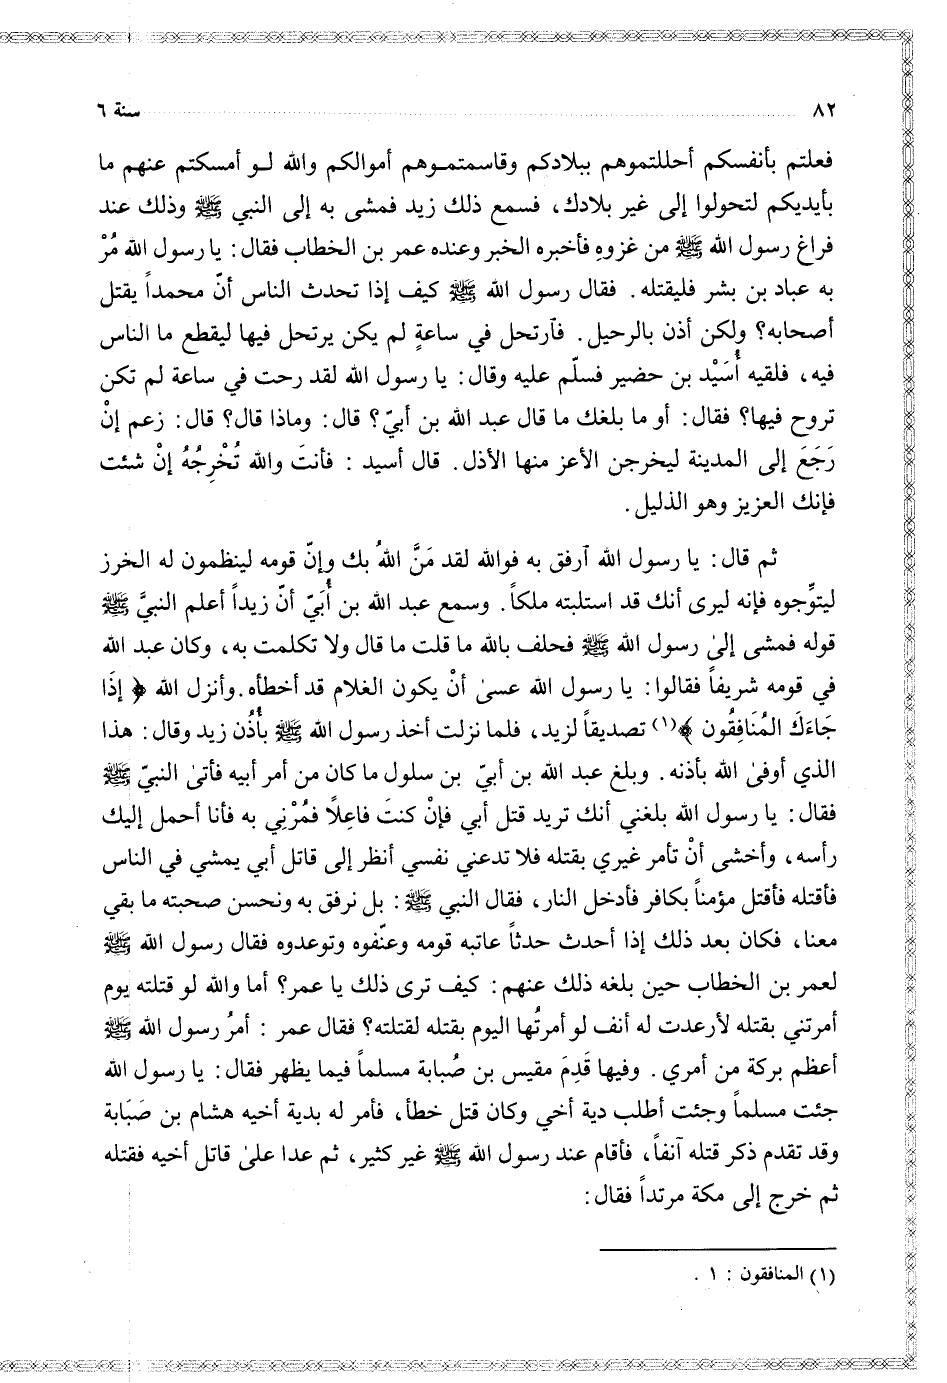 ٨٢ سنة ٦
فعلتم بأنفسكم أحللتموهم ببلادكم وقاسمتموهم أموالكم والله لو أمسكتم عنهم ما
بأيديكم لتحولوا إلى غير بلادك، فسمع ذلك زيد فمشى به إلى النبي ﷺ وذلك عند
فراغ رسول الله ﷺ من غزوهِ فأخبره الخبر وعنده عمر بن الخطاب فقال: يا رسول الله مُرْ
به عباد بن بشر فليقتله. فقال رسول الله ﷺ كيف إذا تحدث الناس أنّ محمداً يقتل
أصحابه؟ ولكن أذن بالرحيل. فآرتحل في ساعةٍ لم يكن يرتحل فيها ليقطع ما الناس
فيه، فلقيه أُسَيْد بن حضير فسلّم عليه وقال: يا رسول الله لقد رحت في ساعة لم تكن
تروح فيها؟ فقال: أو ما بلغك ما قال عبد الله بن أبيّ؟ قال: وماذا قال؟ قال: زعم إنْ
رَجَعَ إلى المدينة ليخرجن الأعز منها الأذل. قال أسيد : فأنتَ والله تُخْرِجُهُ إنْ شئت
فإنك العزيز وهو الذليل.
ثم قال: يا رسول الله آرفق به فوالله لقد مَنَّ اللهُ بك وإنّ قومه لينظمون له الخرز
ليتوِّجوه فإنه ليرى أنك قد استلبته ملكاً. وسمع عبد الله بن أُبَيّ أنّ زيداً أعلم النبيَّ ﷺ
قوله فمشى إلىٰ رسول الله ﷺ فحلف بالله ما قلت ما قال ولا تكلمت به، وكان عبد الله
في قومه شريفاً فقالوا: يا رسول الله عسىٰ أنْ يكون الغلام قد أخطأه.وأنزل الله ﴿ إذَا
جَاءَكَ المُنَافِقُون ﴾(١) تصديقاً لزيد، فلما نزلت أخذ رسول الله ﷺ بأُذُن زيد وقال: هذا
الذي أوفىٰ الله بأذنه. وبلغ عبد الله بن أبيّ بن سلول ما كان من أمر أبيه فأتىٰ النبيّ ﷺ
فقال: يا رسول الله بلغني أنك تريد قتل أبي فإنْ كنتَ فاعِلاً فمُرْنِي به فأنا أحمل إليك
رأسه، وأخشى أنْ تأمر غيري بقتله فلا تدعني نفسي أنظر إلى قاتل أبي يمشي في الناس
فأقتله فأقتل مؤمناً بكافر فأدخل النار، فقال النبي ﷺ: بل نرفق به ونحسن صحبته ما بقي
معنا، فكان بعد ذلك إذا أحدث حدثاً عاتبه قومه وعنّفوه وتوعدوه فقال رسول الله ﷺ
لعمر بن الخطاب حين بلغه ذلك عنهم: كيف ترى ذلك يا عمر؟ أما والله لو قتلته يوم
أمرتني بقتله لأرعدت له أنف لو أمرتُها اليوم بقتله لقتلته؟ فقال عمر : أمرُ رسول الله ﷺ
أعظم بركة من أمري. وفيها قَدِمَ مقيس بن صُبابة مسلماً فيما يظهر فقال: يا رسول الله
جئت مسلماً وجئت أطلب دية أخي وكان قتل خطأ، فأمر له بدية أخيه هشام بن صَبَابة
وقد تقدم ذكر قتله آنفاً، فأقام عند رسول الله ﷺ غير كثير، ثم عدا علىٰ قاتل أخيه فقتله
ثم خرج إلى مكة مرتداً فقال:
(١) المنافقون : ١ .